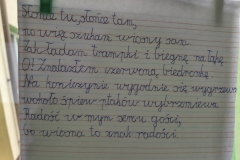 Słońce tu, słońce tam,
no więc szukam wiosny sam.
Zakładam trampki i biegnę na łąkę
O! Znalazłem czerwoną biedronkę.
Na koniczynie wygodnie się wygrzewa
wokoło śpiew ptaków wybrzmiewa
Radość w mym sercu gości,
bo wiosna to znak radości.